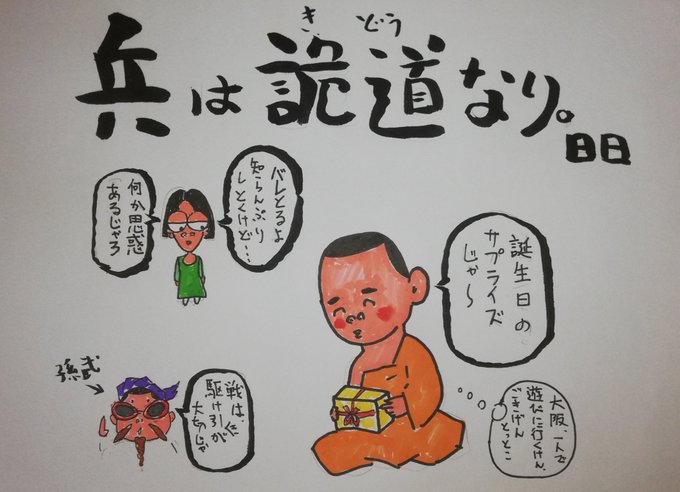 きどう
兵は詭道なり。
日日
バレとるよ
知らんぷり
しとくけど…
何か思惑
あるじゃろ
誕生日の
サプライズ
じゃ〜
大阪、一人で
遊びに行くけん、
ごきげん
とっとこ
孫武
戦は、
駆け引きが
大切じゃ